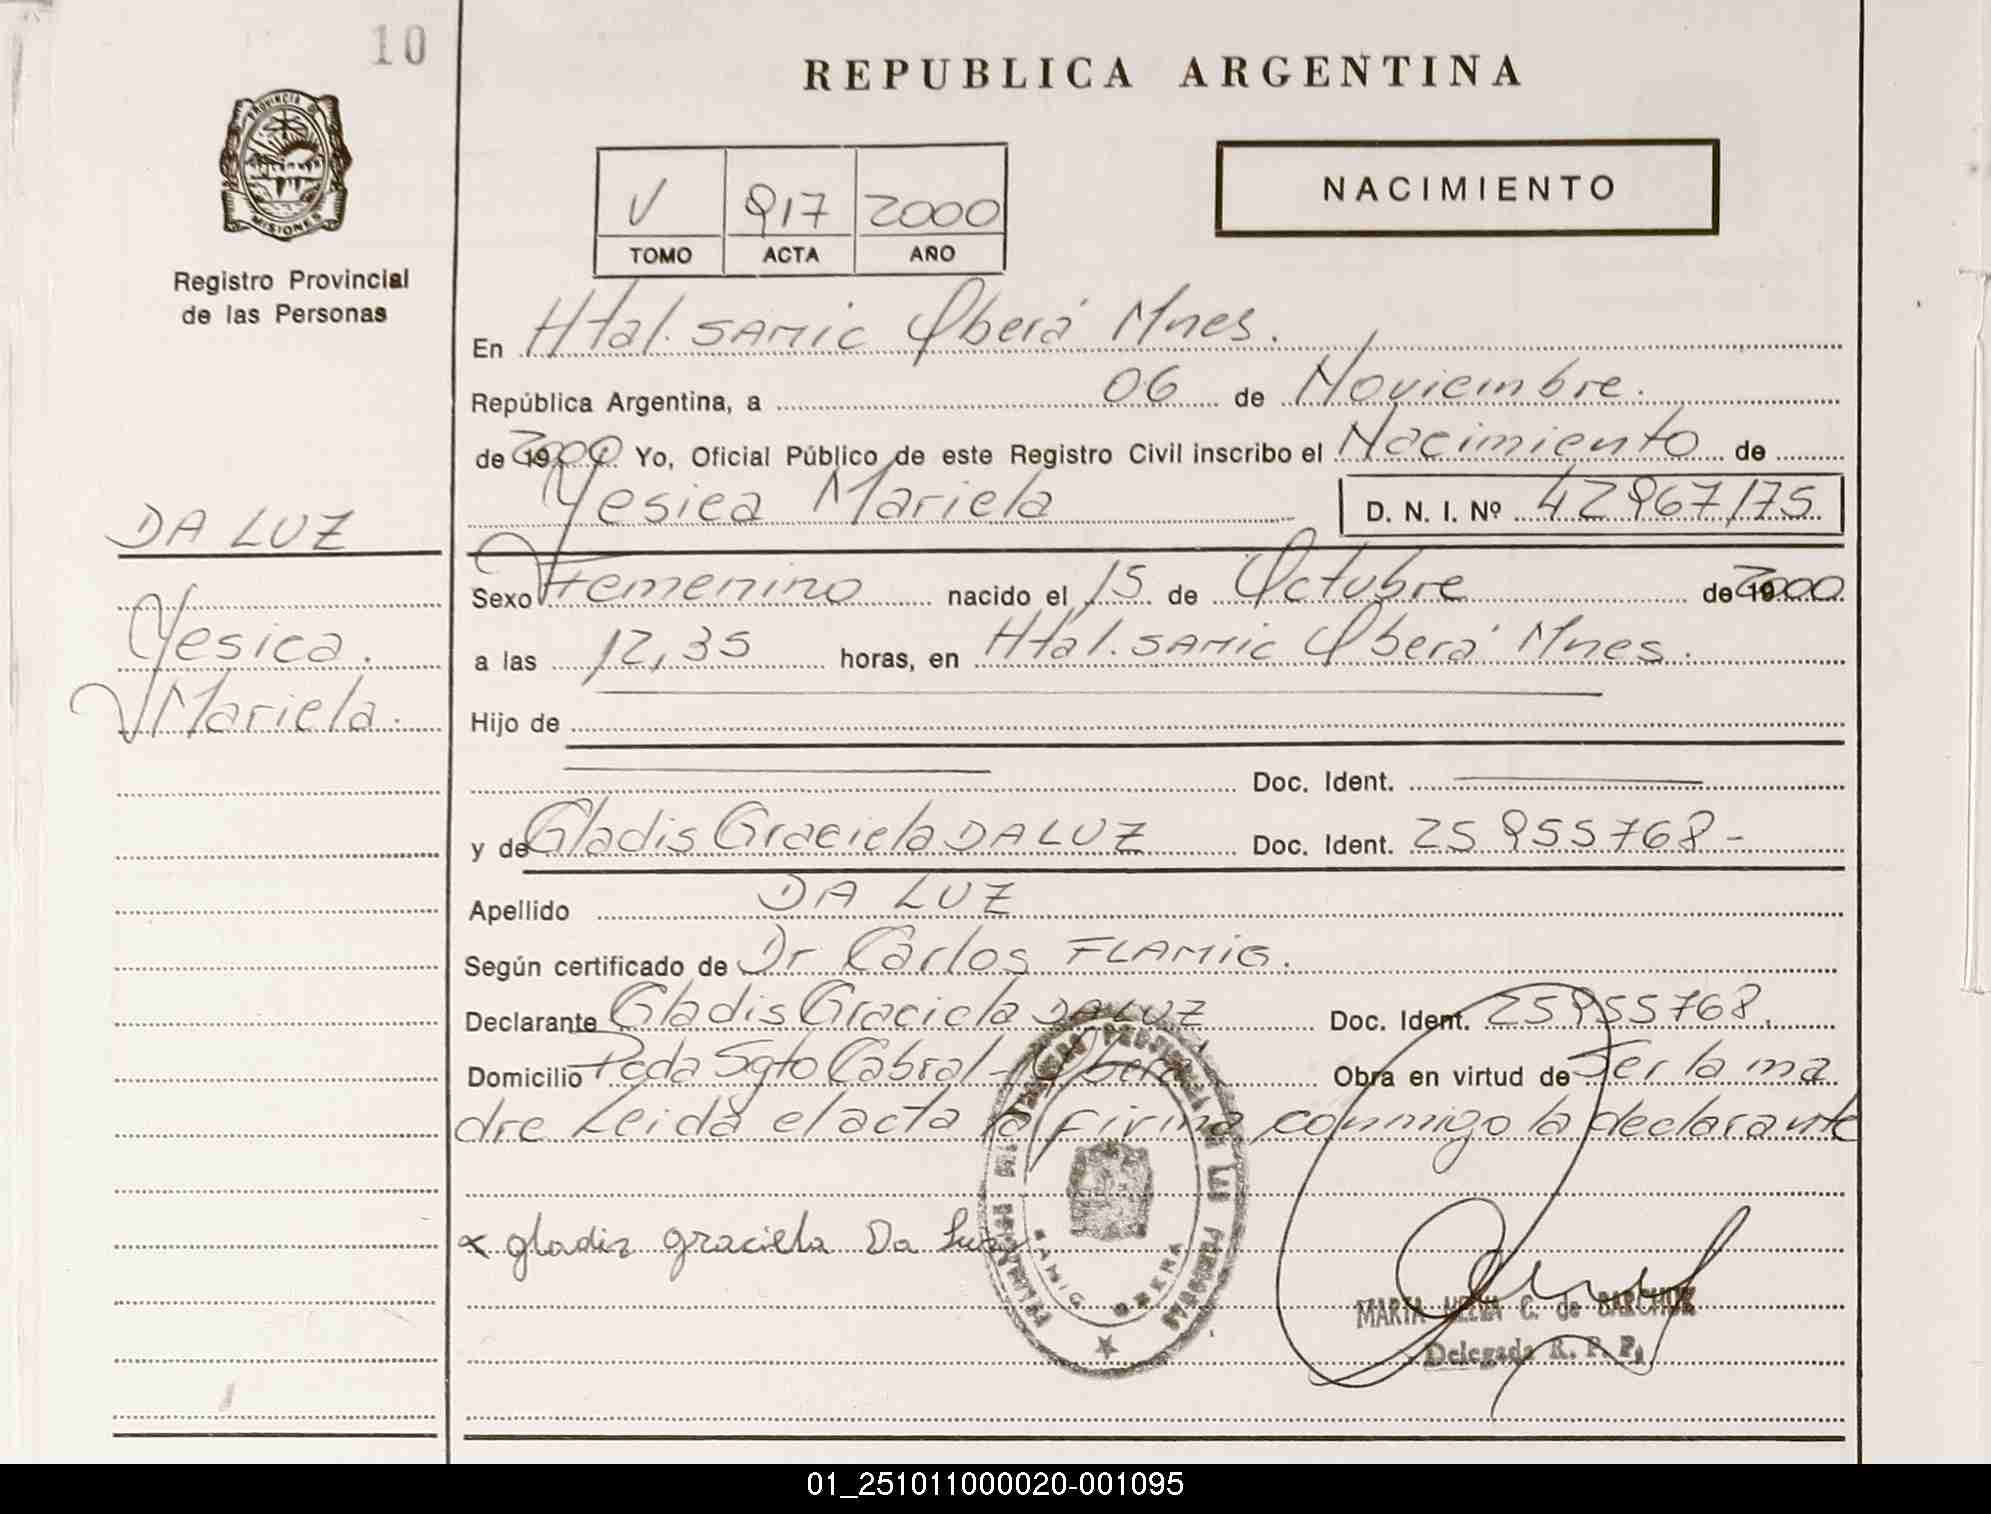 10
REPUBLICA ARGENTINA
PROVINCIA D
MISIONES
V 817 2000
TOMO ACTA AÑO
NACIMIENTO
Registro Provincial
de las Personas
En Htal. SAMIC Oberá Mnes.
República Argentina, a 06 de Noviembre.
de 2000 Yo, Oficial Público de este Registro Civil inscribo el Nacimiento de
Yesica Mariela D. N. I. Nº 42867175
DA LUZ
Sexo Femenino nacido el 15 de Octubre de 2000
Yesica.
a las 12,35 horas, en Htal. SAMIC Oberá Mnes.
Mariela.
Hijo de
Doc. Ident.
y de Gladis Graciela DA LUZ Doc. Ident. 25855768-
Apellido DA LUZ
Según certificado de Dr Carlos FLAMIG.
Declarante Gladis Graciela DA LUZ Doc. Ident. 25855768.
Domicilio Pcda Sgto Cabral - Oberá Obra en virtud de Ser la ma
dre Leida el acta la firma conmigo la declarante
x gladiz graciela Da Luz
SAMIC OBERA
MARTA C. de BARCHUK
Delegada R. P. P.
01_251011000020-001095